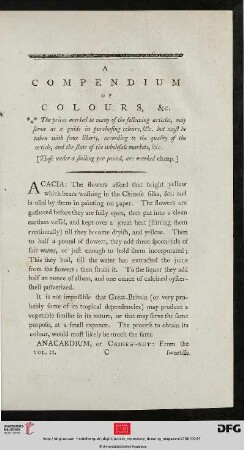 A
COMPENDIUM
OF
COLOURS, &c.
*⁎* The prices marked to many of the following articles, may
serve as a guide in purchasing colours, &c. but must be
taken with some liberty, according to the quality of the
article, and the state of the wholesale markets, &c.
[Those under a shilling per pound, are marked cheap.]
ACACIA: The flowers afford that bright yellow
which bears washing in the Chinese silks, &c. and
is used by them in painting on paper. The flowers are
gathered before they are fully open, then put into a clean
earthen vessel, and kept over a great heat (stirring them
continually) till they become dryish, and yellow. Then
to half a pound of flowers, they add three spoonfuls of
fair water, or just enough to hold them incorporated;
This they boil, till the water has extracted the juice
from the flowers: then strain it. To the liquor they add
half an ounce of allum, and one ounce of calcined oyster-
shell pulverized.
It is not impossible that Great-Britain (or very pro-
bably some of its tropical dependencies) may produce a
vegetable similar in its nature, or that may serve the same
purpose, at a small expence. The process to obtain its
colour, would most likely be much the same
ANACARDIUM, or CASHEW-NUT: From the
VOL. II. C
UNIVERSITÄTS-
BIBLIOTHEK
HEIDELBERG
DFG
© Universitätsbibliothek Heidelberg